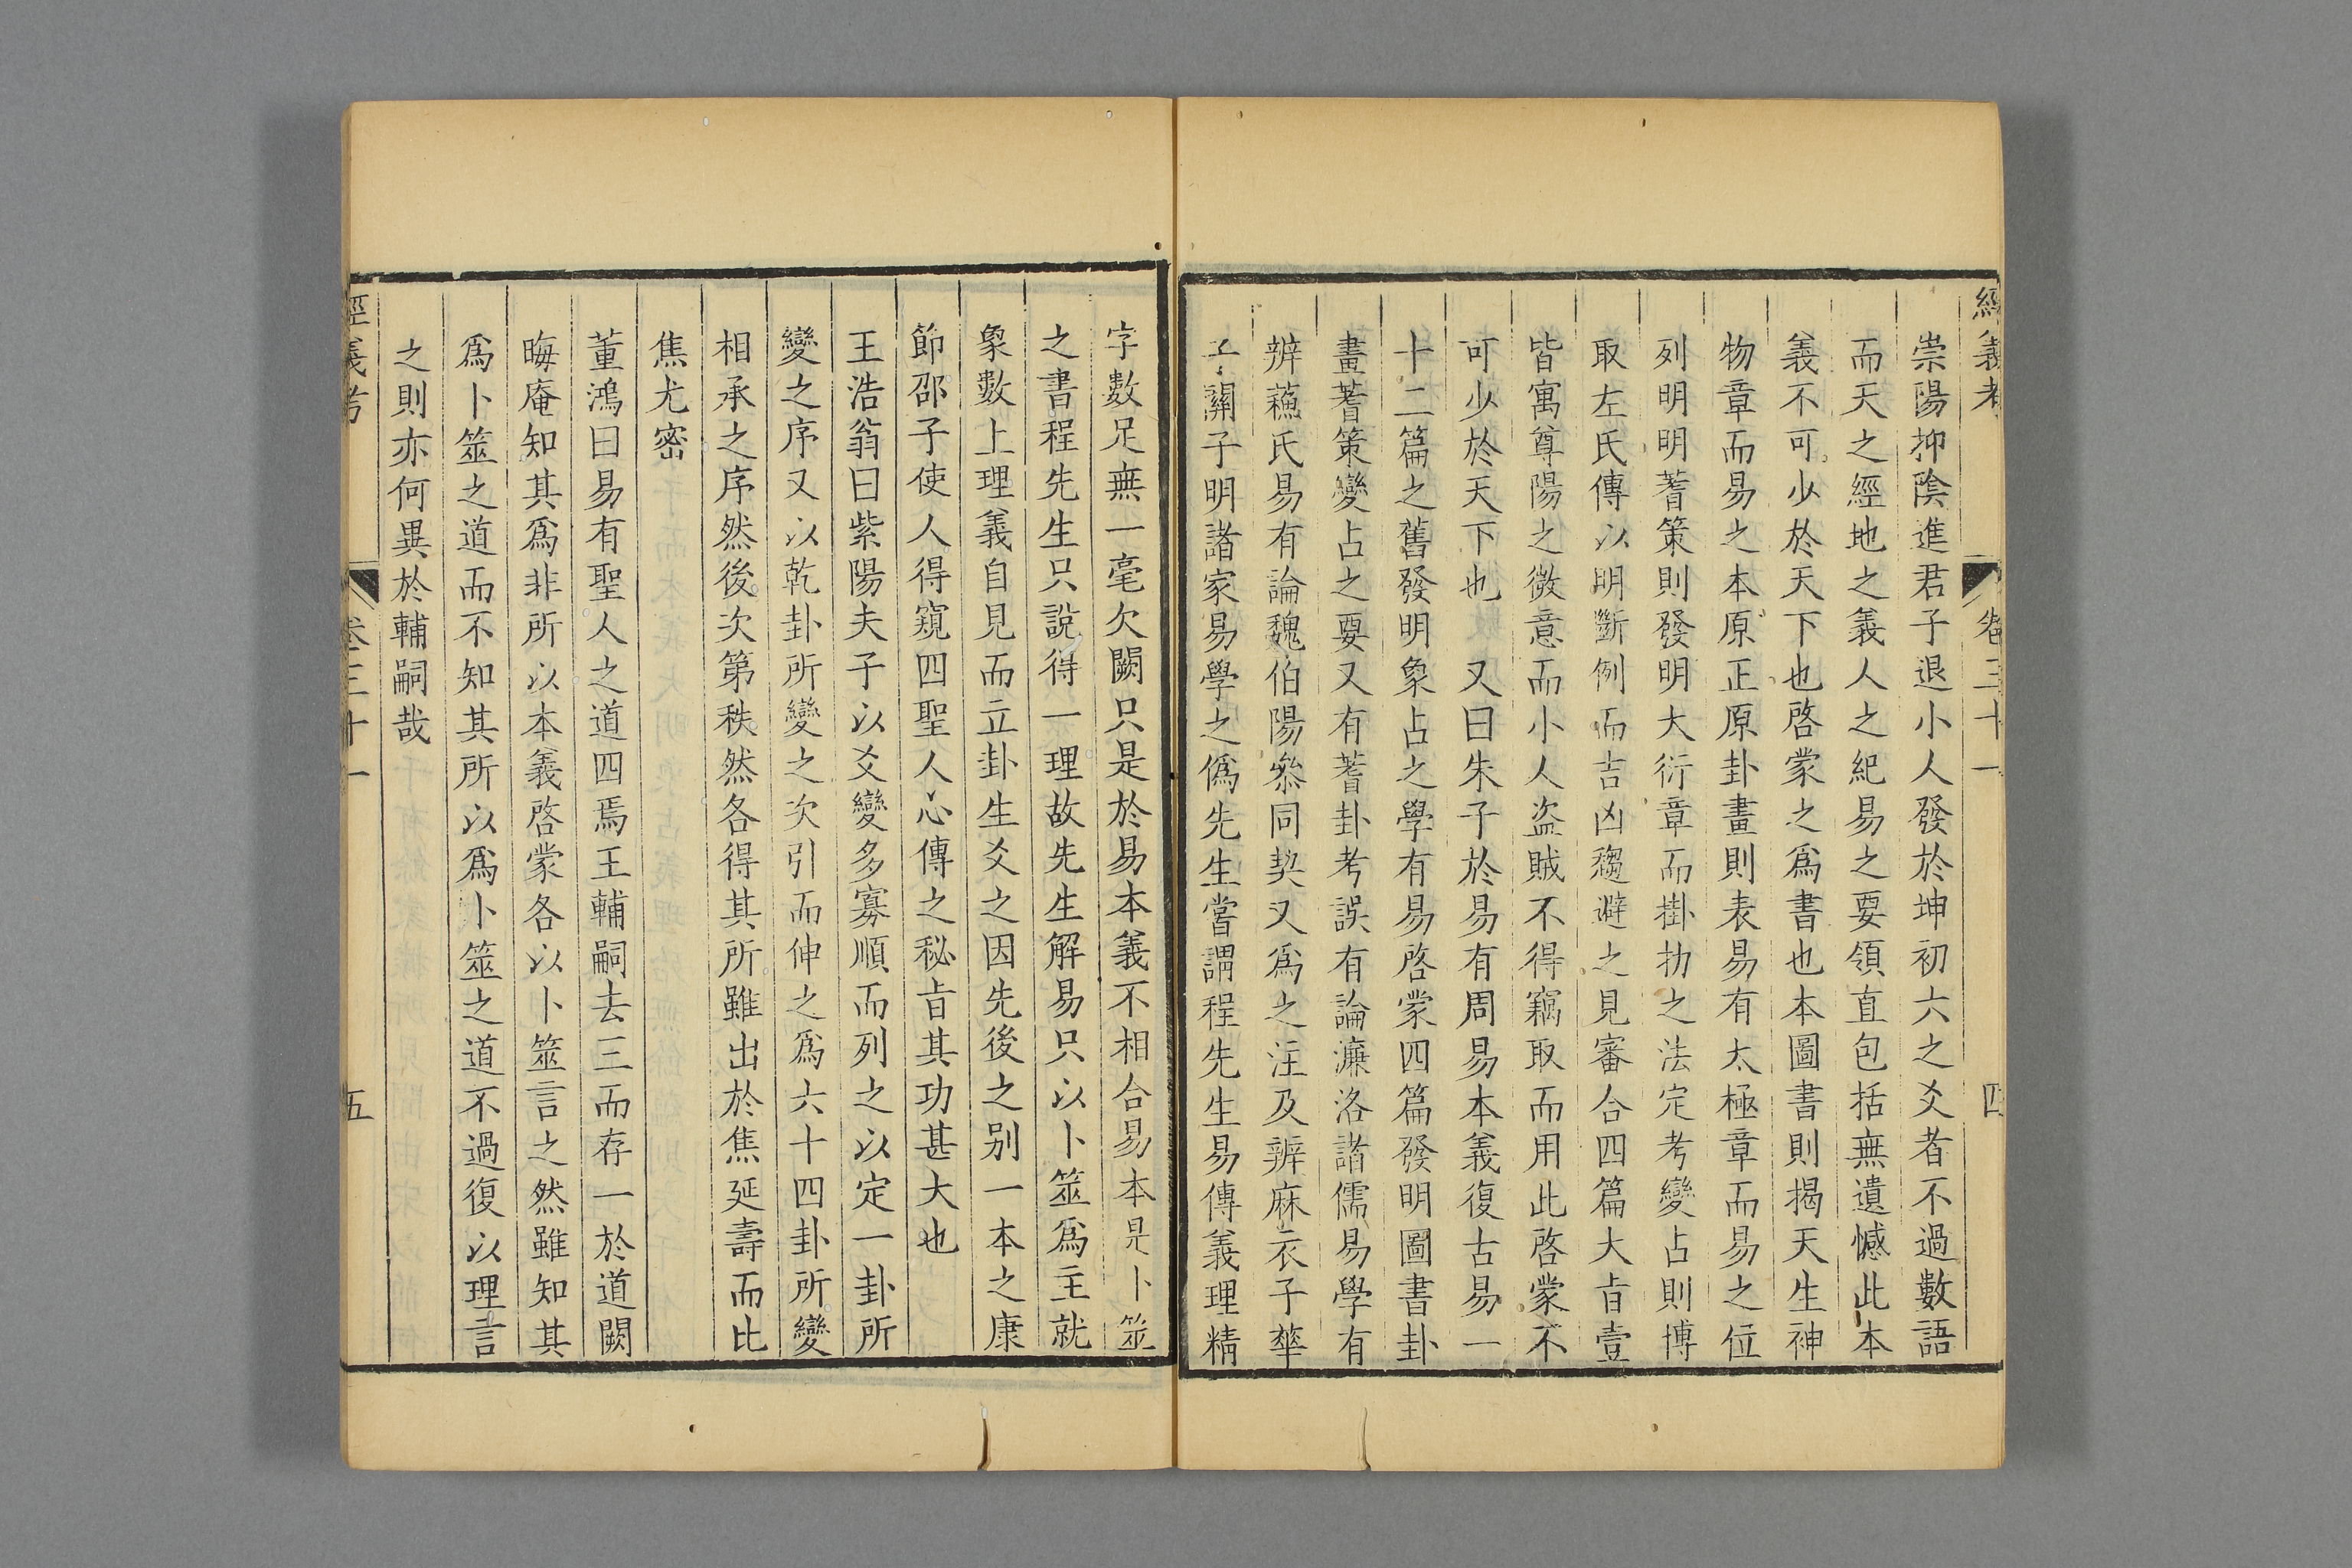 經義考 卷三十一 四
崇陽抑陰進君子退小人發於坤初六之爻者不過數語
而天之經地之義人之紀易之要領直包括無遺憾此本
義不可少於天下也啓蒙之爲書也本圖書則揭天生神
物章而易之本原正原卦畫則表易有太極章而易之位
列明明蓍策則發明大衍章而掛扐之法定考變占則博
取左氏傳以明斷例而吉凶趨避之見審合四篇大旨壹
皆寓尊陽之微意而小人盜賊不得竊取而用此啓蒙不
可少於天下也 又曰朱子於易有周易本義復古易一
十二篇之舊發明象占之學有易啓蒙四篇發明圖書卦
畫蓍策變占之要又有蓍卦考誤有論濂洛諸儒易學有
辨蘇氏易有論魏伯陽叅同契又爲之注及辨麻衣子華
子關子明諸家易學之僞先生嘗謂程先生易傳義理精
字數足無一毫欠闕只是於易本義不相合易本是卜筮
之書程先生只說得一理故先生解易只以卜筮爲主就
象數上理義自見而立卦生爻之因先後之別一本之康
節邵子使人得窺四聖人心傳之秘旨其功甚大也
王浩翁曰紫陽夫子以爻變多寡順而列之以定一卦所
變之序又以乾卦所變之次引而伸之爲六十四卦所變
相承之序然後次第秩然各得其所雖出於焦延壽而比
焦尤密
董鴻曰易有聖人之道四焉王輔嗣去三而存一於道闕
晦庵知其爲非所以本義啓蒙各以卜筮言之然雖知其
爲卜筮之道而不知其所以爲卜筮之道不過復以理言
之則亦何異於輔嗣哉
經義考 卷三十一 五